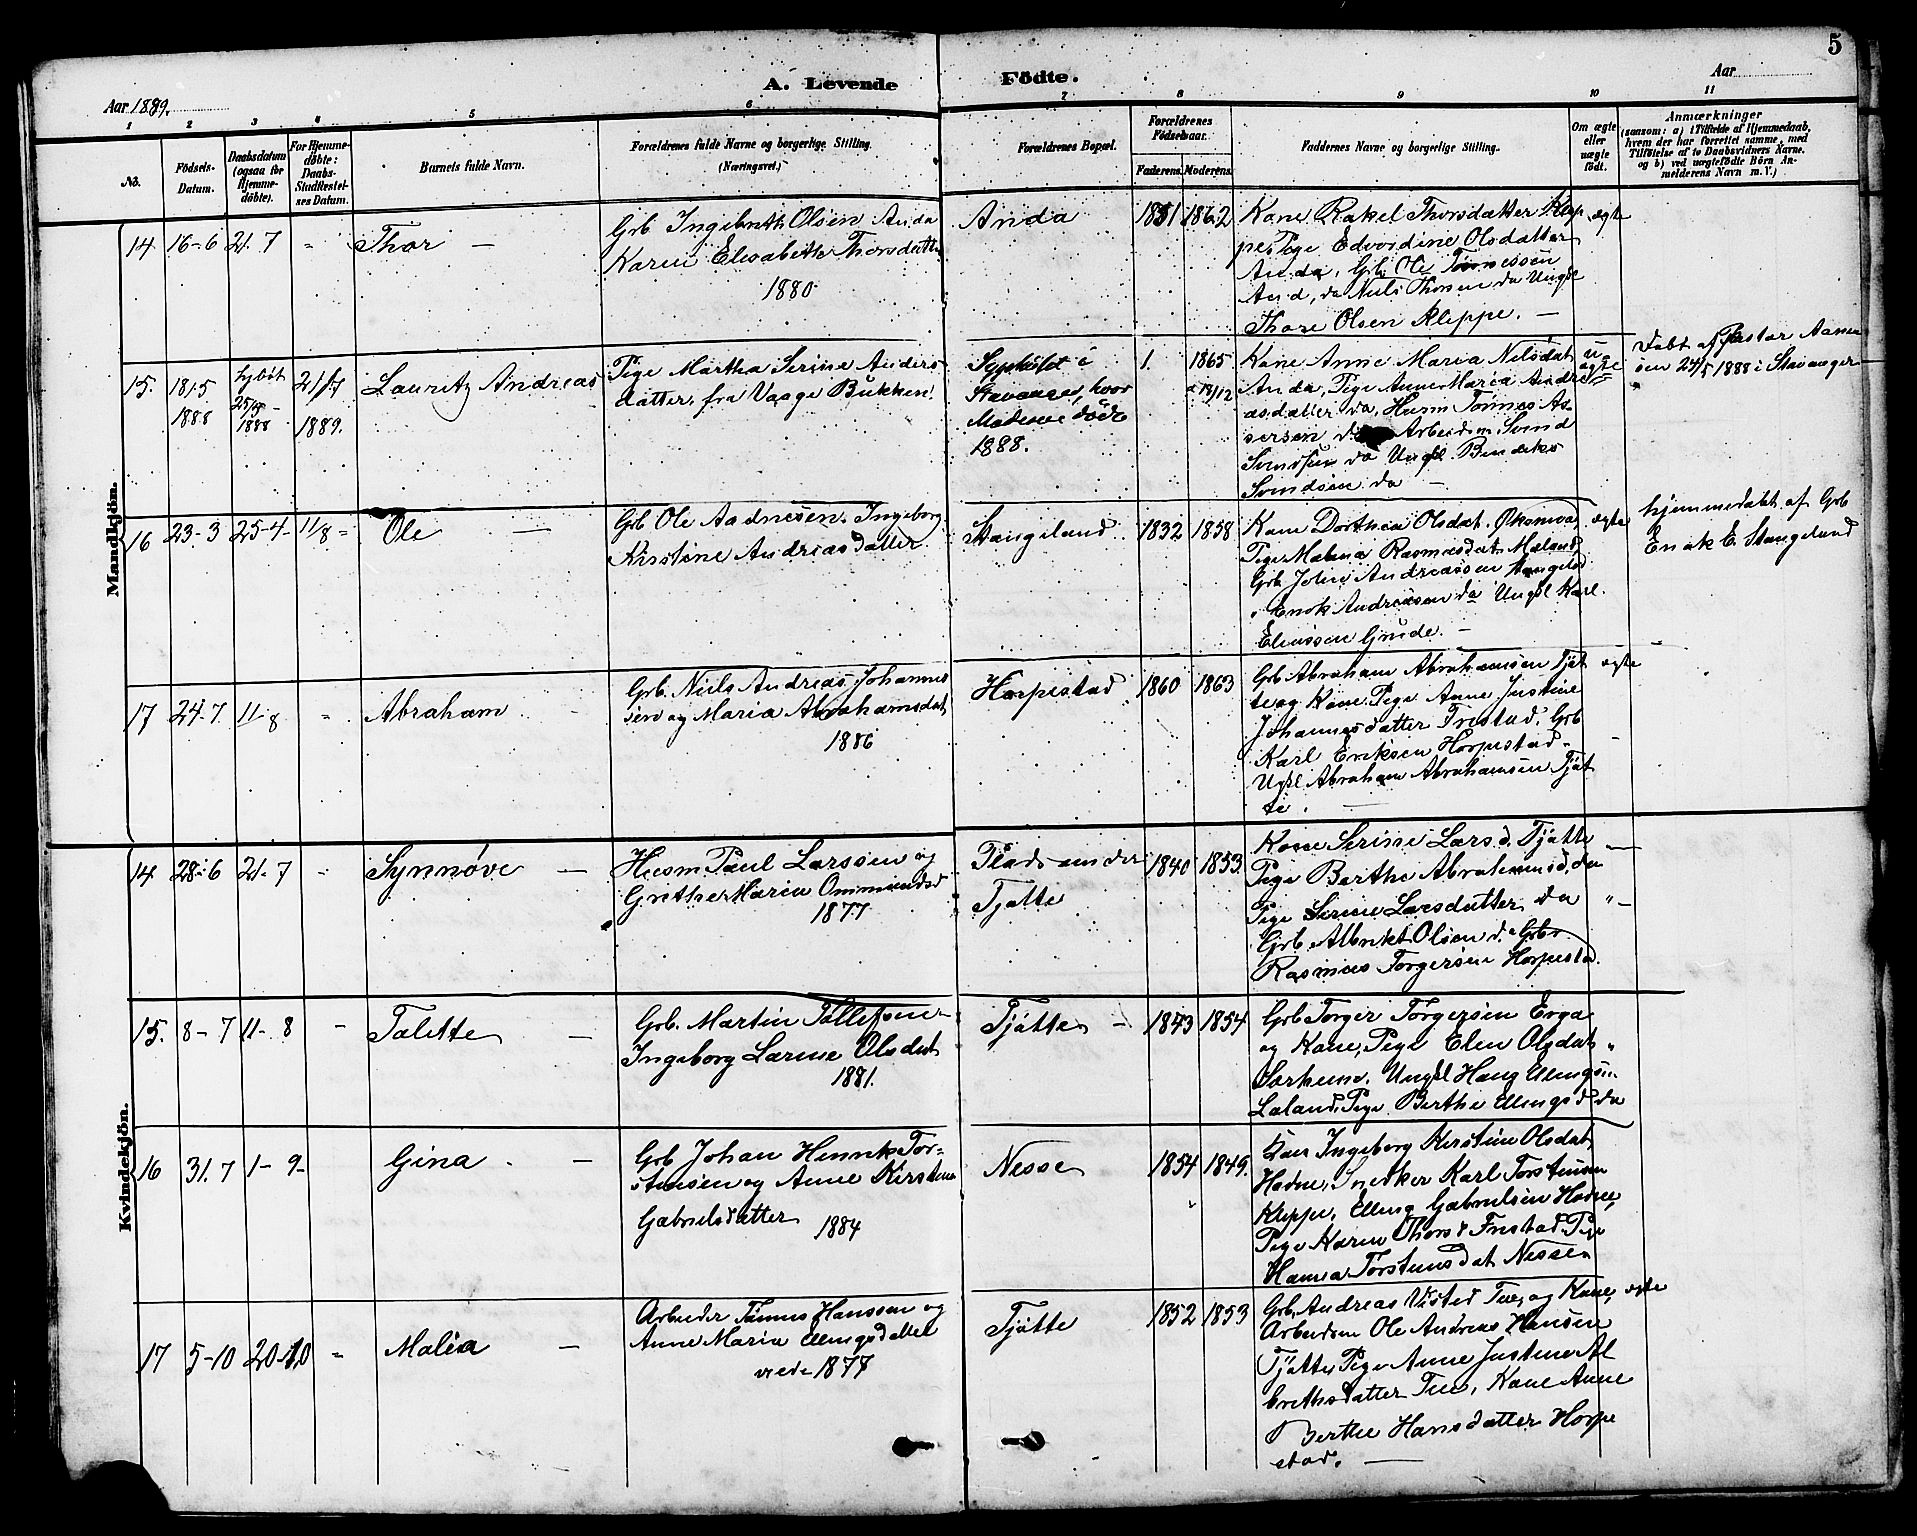 5
A. Levende Födte.
Aar 1889.
Aar
1 2 3 4 5 6 7 8 9 10 11
No.
Födsels-Datum.
Daabsdatum (ogsaa for Hjemmedöbte).
For Hjemmedöbte: Daabs-Stadfestelses Datum.
Barnets fulde Navn.
Forældrenes fulde Navne og borgerlige Stilling. (Næringsvei.)
Forældrenes Bopæl.
Forældrenes Födselsaar.
Faderens. Moderens.
Faddernes Navne og borgerlige Stilling.
Om ægte eller uægte födt.
Anmærkninger
(saasom: a) i Tilfælde af Hjemmedaab,
hvem der har forrettet samme, med
Tilföielse af to Daabsvidners Navne.
og b) ved uægtefödte Börn An-
melderens Navn m. V.)
Mandkjön.
14. 16-6 21.7 " Thor -
Grb Ingebreth Olsen Anda
Karen Elisabeth Thorsdatter
1880
Anda 1851 1862
Kone Rakel Thorsdatter Klep
pe, Pige Edvardine Olsdatter
Anda, Grb. Ole Tønnessen
And, da Niels Thorsen da Ungk
Thore Olsen Kleppe. -
ægte
15. 18/5 1888 25/5 1888 21/7 1889. Lauritz Andreas
Pige Martha Serine Anders
datter, fra Vaage Bukken
Sygehuset i
Stavanger, hvor
Moderen døde
1888.
1. 1865
Kone Anne Maria Nilsdat
Anda, Pige Anne Maria Andre
asdatter da, Husm Tønnes As-
sersen da Arbeidsm. Svend
Svendsen da Ungk. Bendiks
Svendsen da -
uægte
Døbt af Pastor Aanen
sen 25/5 1888 i Stavanger
16 23-3 25-4- 11/8 - Ole -
Grb Ole Aadnesen, Ingeborg
Kirstine Andreasdatter
Stangeland 1832 1858
Kone Dorthea Olsdat.
Pige Malena Rasmusdat. Mæland,
Grb John Andreassen Stangeld
Enok Andreasen da Ungkl Karl
Eliassen Grude. -
ægte
hjemmedøbt af Grb
Enok E. Stangeland
17 24.7 11-8 " Abraham -
Grb. Niels Andreas Johannes
sen og Maria Abrahamsdat
1886
Horpestad 1860 1863
Grb Abraham Abrahamsen Tjøt
te og Kone, Pige Anne Justine
Johannesdatter Frøstad, Grb
Karl Eriksen Horpestad -
Ugkl Abraham Abrahamsen Tjøt
te. -
ægte
Kvindekjön.
14. 28-6 21.7 - Synnøve -
Husm Paul Larsen og
Grethe Maria Ommundsd
1877
Plads under
Tjøtte
1840 1853.
Kone Serine Larsd. Tjøtte
Pige Berthe Abrahamsd. da
Pige Serine Larsdatter da
Grb. Albrikt Olsen d. Grb
Rasmus Torgersen Horpestad.
" -
15. 8-7 11-8 - Talette -
Grb. Martin Tollefsen
Ingeborg Larine Olsdat
1881.
Tjøtte - 1843 1854
Grb Torger Torgersen Erga
og Kone, Pige Elen Olsdat "
Sørheim. Ungkl Haug Ellingsen
Laland, Pige Berthe Ellingsd da
16 31.7 1-9- Gina. -
Grb Johan Henrik Tor-
stensen og Anne Kirstine
Gabrielsdatter 1884
Nesse 1854 1849.
Kone Ingeborg Kirstine Olsdat,
Hodne, Snedker Karl Torstensen
Kleppe, Elling Gabrielsen Hodne,
Pige Karen Thorsd Frøstad, Pige
Hanna Torstensdat Nesse
17 5-10 20-10 - Malia -
Arbeider Tønnes Hanssen og
Anne Maria Ellingsdatter
viede 1877
Tjøtte 1852 1853
Grb. Andreas Visted Tue, og Kone,
Arbeidsm Ole Andreas Hansen
Tjøtte, Pige Anne Justine Al
brithsdatter Tue, Kone Anne
Berthe Hansdatter Horpe
stad. -
ægte